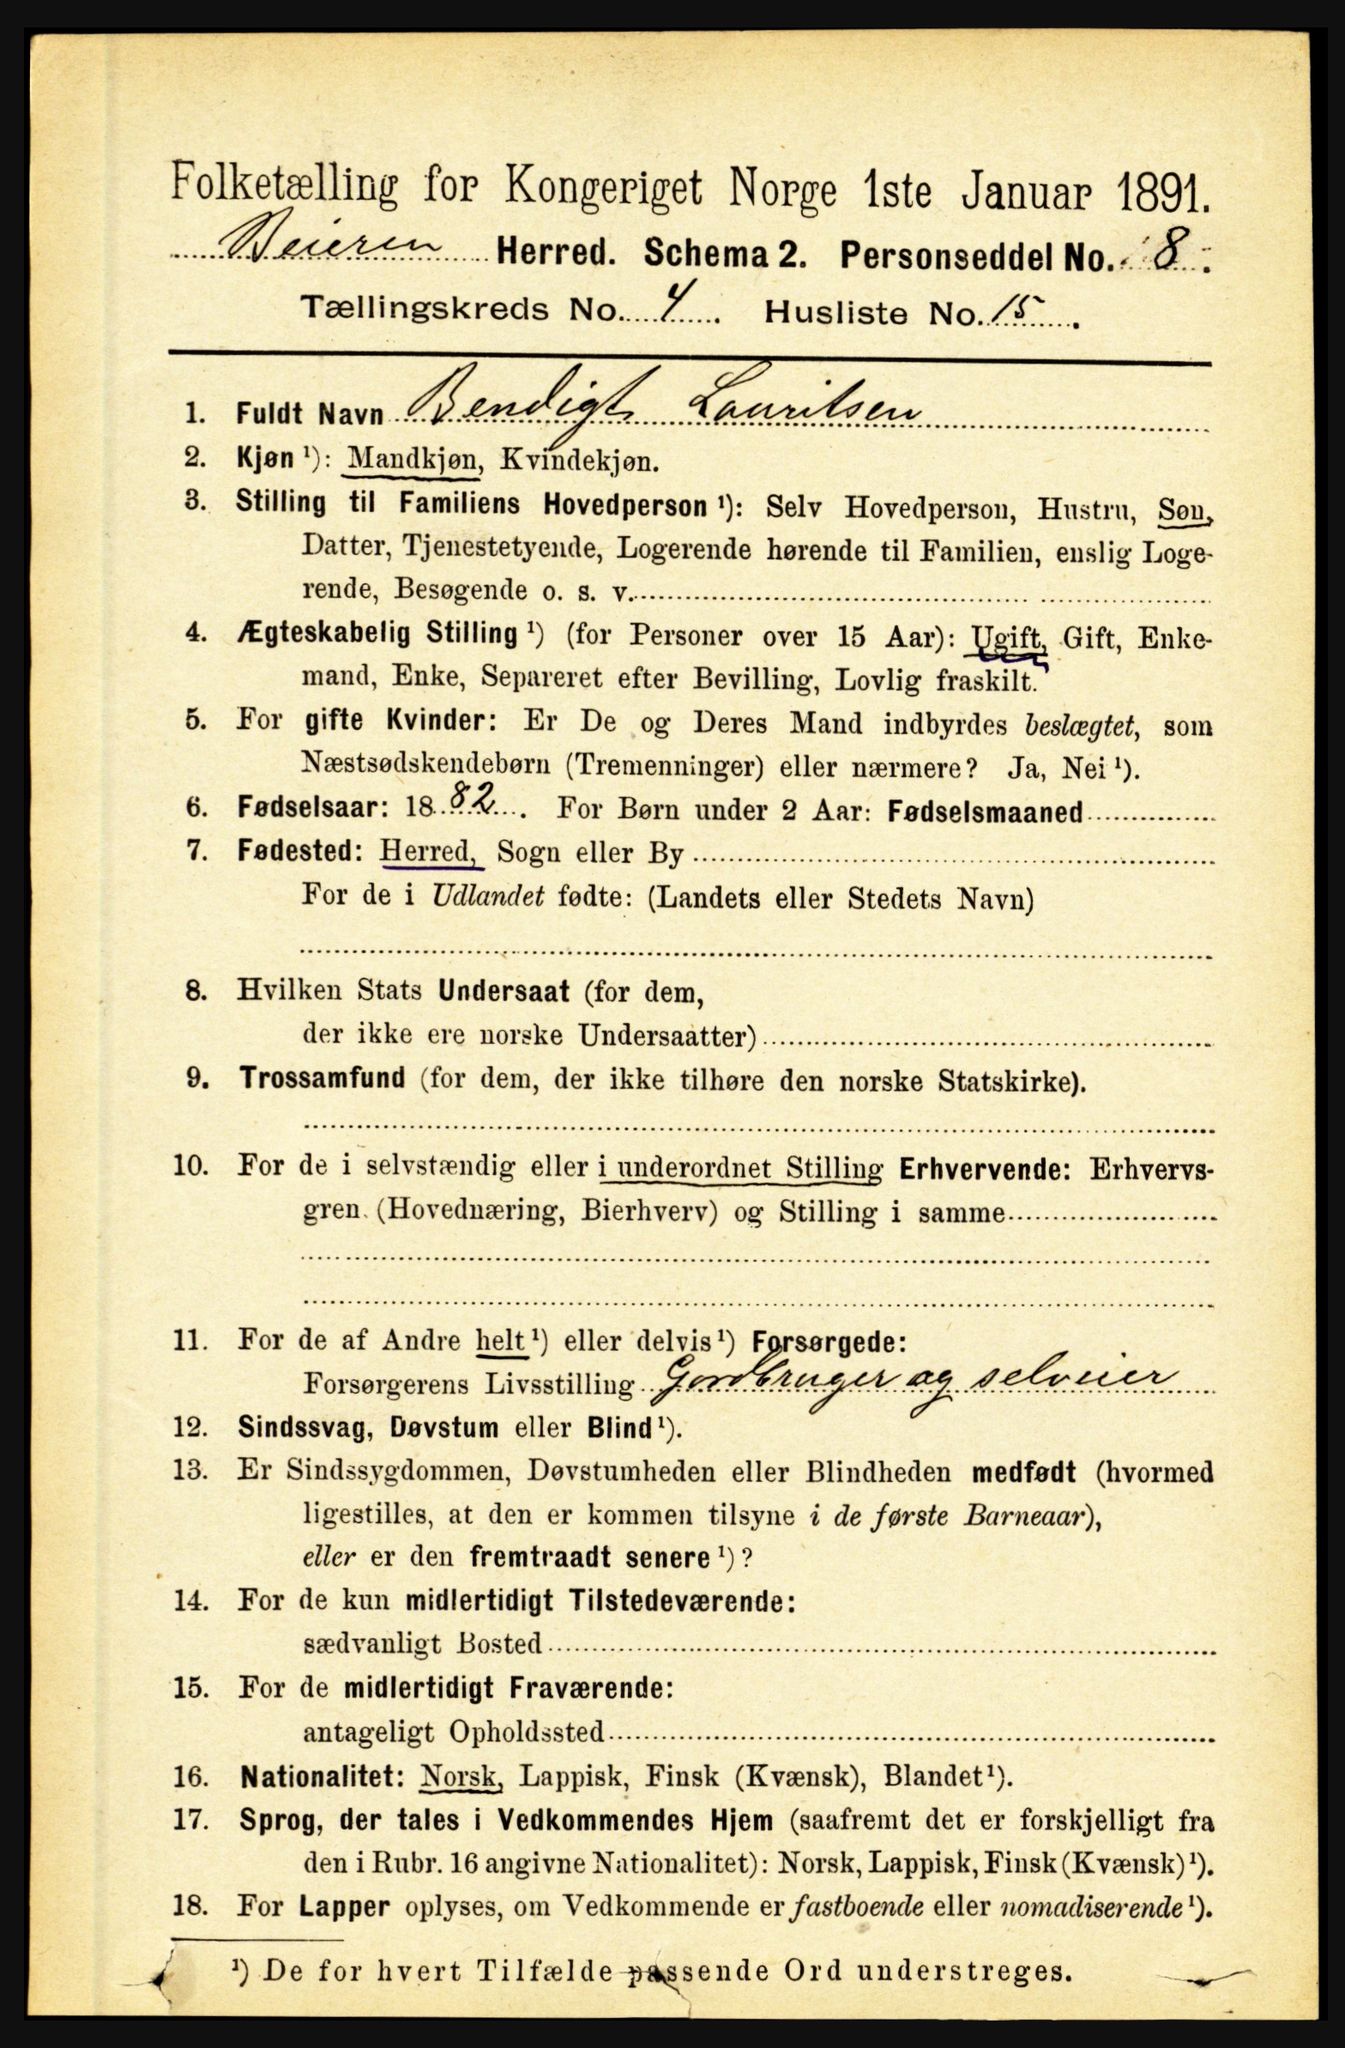 Folketælling for Kongeriget Norge 1ste Januar 1891.
Beieren Herred. Schema 2. Personseddel No. 8.
Tællingskreds No. 4. Husliste No. 15.
1. Fuldt Navn Bendigt Lauritsen
2. Kjøn ¹): Mandkjøn, Kvindekjøn.
3. Stilling til Familiens Hovedperson ¹): Selv Hovedperson, Hustru, Søn,
Datter, Tjenestetyende, Logerende hørende til Familien, enslig Loge-
rende, Besøgende o. s. v.
4. Ægteskabelig Stilling ¹) (for Personer over 15 Aar): Ugift, Gift, Enke-
mand, Enke, Separeret efter Bevilling, Lovlig fraskilt.
5. For gifte Kvinder: Er De og Deres Mand indbyrdes beslægtet, som
Næstsødskendebørn (Tremenninger) eller nærmere? Ja, Nei ¹).
6. Fødselsaar: 1882. For Børn under 2 Aar: Fødselsmaaned
7. Fødested: Herred, Sogn eller By
For de i Udlandet fødte: (Landets eller Stedets Navn)
8. Hvilken Stats Undersaat (for dem,
der ikke ere norske Undersaatter)
9. Trossamfund (for dem, der ikke tilhøre den norske Statskirke).
10. For de i selvstændig eller i underordnet Stilling Erhvervende: Erhvervs-
gren (Hovednæring, Bierhverv) og Stilling i samme
11. For de af Andre helt ¹) eller delvis ¹) Forsørgede:
Forsørgerens Livsstilling Gordbruger og selveier
12. Sindssvag, Døvstum eller Blind ¹).
13. Er Sindssygdommen, Døvstumheden eller Blindheden medfødt (hvormed
ligestilles, at den er kommen tilsyne i de første Barneaar),
eller er den fremtraadt senere ¹)?
14. For de kun midlertidigt Tilstedeværende:
sædvanligt Bosted
15. For de midlertidigt Fraværende:
antageligt Opholdssted
16. Nationalitet: Norsk, Lappisk, Finsk (Kvænsk), Blandet ¹).
17. Sprog, der tales i Vedkommendes Hjem (saafremt det er forskjelligt fra
den i Rubr. 16 angivne Nationalitet): Norsk, Lappisk, Finsk (Kvænsk) ¹).
18. For Lapper oplyses, om Vedkommende er fastboende eller nomadiserende ¹).
¹) De for hvert Tilfælde passende Ord understreges.